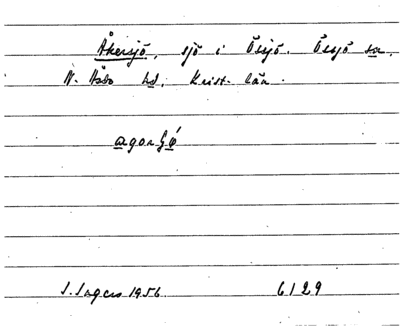 Åkersjö, sjö i Össjö. Össjö sn,
N. Åsbo hd, Krist. län.
S. Ingers 1956
6129